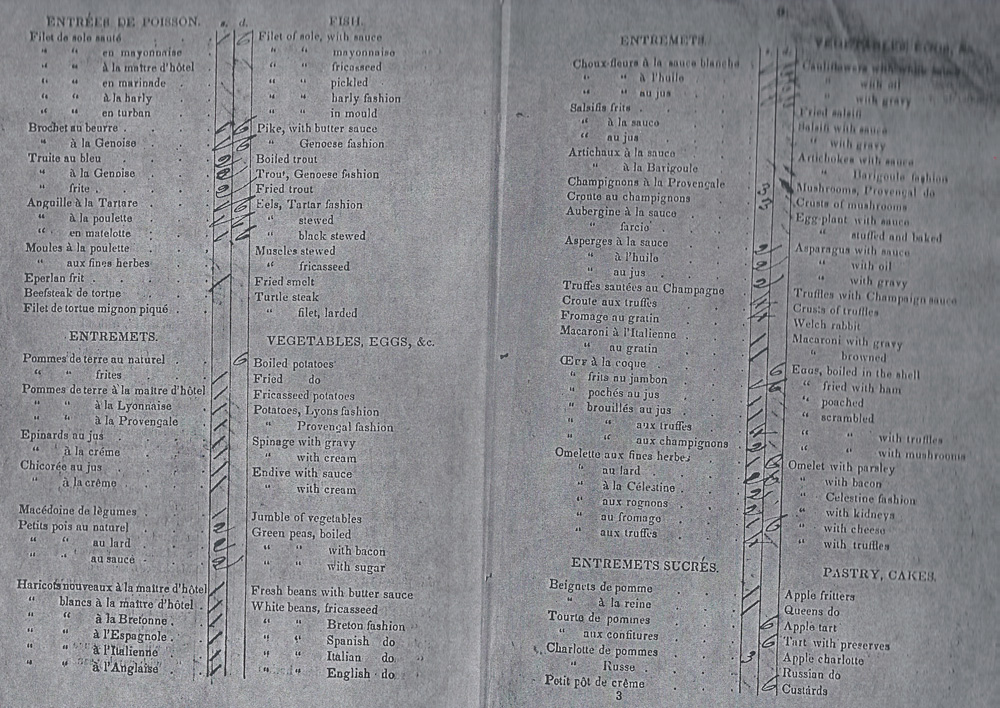 ENTRÉES DE POISSON. s. d. FISH.
Filet de sole sauté 1 6 Filet of sole, with sauce
“ “ en mayonnaise “ “ mayonnaise
“ “ à la maitre d'hôtel “ “ fricasseed
“ “ en marinade “ “ pickled
“ “ à la harly “ “ harly fashion
“ “ en turban “ “ in mould
Brochet au beurre Pike, with butter sauce
“ à la Genoise “ Genoese fashion
Truite au bleu Boiled trout
“ à la Genoise Trout, Genoese fashion
“ frite Fried trout
Anguille à la Tartare Eels, Tartar fashion
“ à la poulette “ stewed
“ en matelotte “ black stewed
Moules à la poulette Muscles stewed
“ aux fines herbes “ fricasseed
Eperlan frit Fried smelt
Beefsteak de tortue Turtle steak
Filet de tortue mignon piqué “ filet, larded
ENTREMETS. VEGETABLES, EGGS, &c.
Pommes de terre au naturel 6 Boiled potatoes
“ “ frites Fried do
Pommes de terre à la maitre d'hôtel Fricasseed potatoes
“ “ à la Lyonnaise Potatoes, Lyons fashion
“ “ à la Provençale “ Provençal fashion
Epinards au jus Spinage with gravy
“ à la créme “ with cream
Chicorée au jus Endive with sauce
“ à la crême “ with cream
Macédoine de lègumes Jumble of vegetables
Petits pois au naturel Green peas, boiled
“ “ au lard “ “ with bacon
“ “ au sauce “ “ with sugar
Haricots nouveaux à la maitre d'hôtel Fresh beans with butter sauce
“ blancs à la maitre d'hôtel White beans, fricasseed
“ “ à la Bretonne “ “ Breton fashion
“ “ à l'Espagnole “ “ Spanish do
“ “ à l'Italienne “ “ Italian do
“ “ à l'Anglaise “ “ English do
ENTREMETS. VEGETABLES, EGGS, &c.
Choux-fleurs à la sauce blanche Cauliflowers with white sauce
“ “ à l'huile “ with oil
“ “ au jus “ with gravy
Salsifis frits Fried salsifi
“ à la sauce Salsifi with sauce
“ au jus “ with gravy
Artichaux à la sauce Artichokes with sauce
“ à la Barigoule “ Barigoule fashion
Champignons à la Provençale Mushrooms, Provençal do
Croute au champignons 3 Crusts of mushrooms
Aubergine à la sauce 3 Egg-plant with sauce
“ farcie “ stuffed and baked
Asperges à la sauce Asparagus with sauce
“ à l'huile “ with oil
“ au jus “ with gravy
Truffes sautées au Champagne Truffles with Champaign sauce
Croute aux truffes Crusts of truffles
Fromage au gratin Welch rabbit
Macaroni à l'Italienne Macaroni with gravy
“ au gratin “ browned
Œufs à la coque 6 Eggs, boiled in the shell
“ frits au jambon “ fried with ham
“ pochés au jus “ poached
“ brouillés au jus “ scrambled
“ “ aux truffes “ “ with truffles
“ “ aux champignons “ “ with mushrooms
Omelette aux fines herbes Omelet with parsley
“ au lard “ with bacon
“ à la Célestine “ Celestine fashion
“ aux rognons “ with kidneys
“ au fromage “ with cheese
“ aux truffes “ with truffles
ENTREMETS SUCRÉS. PASTRY, CAKES.
Beignets de pomme Apple fritters
“ à la reine Queens do
Tourte de pommes 6 Apple tart
“ aux confitures 6 Tart with preserves
Charlotte de pommes 3 Apple charlotte
“ Russe Russian do
Petit pôt de crême 6 Custards
3